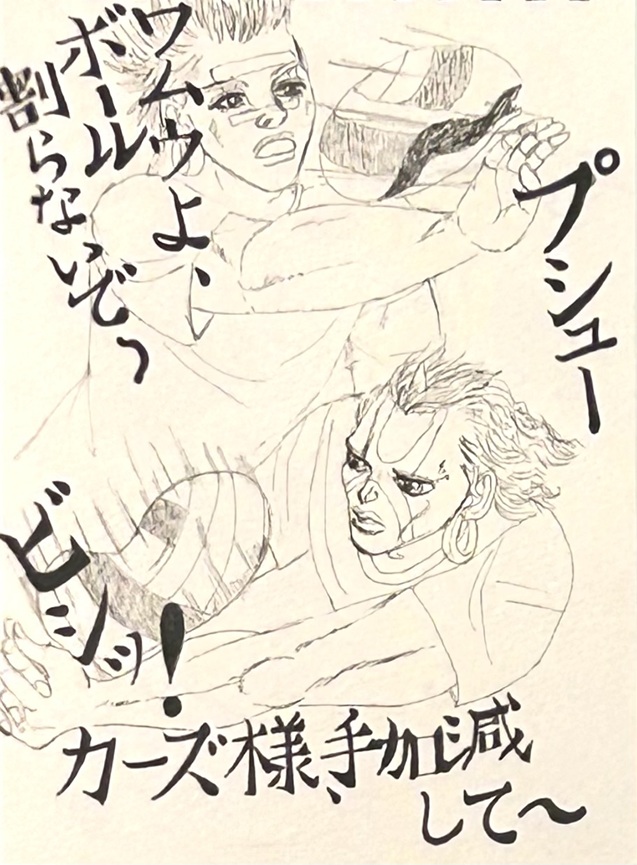 ワムウよ、
ボール
割らないで〜
プシュー
ビシッ!
カーズ様、手加減
して〜